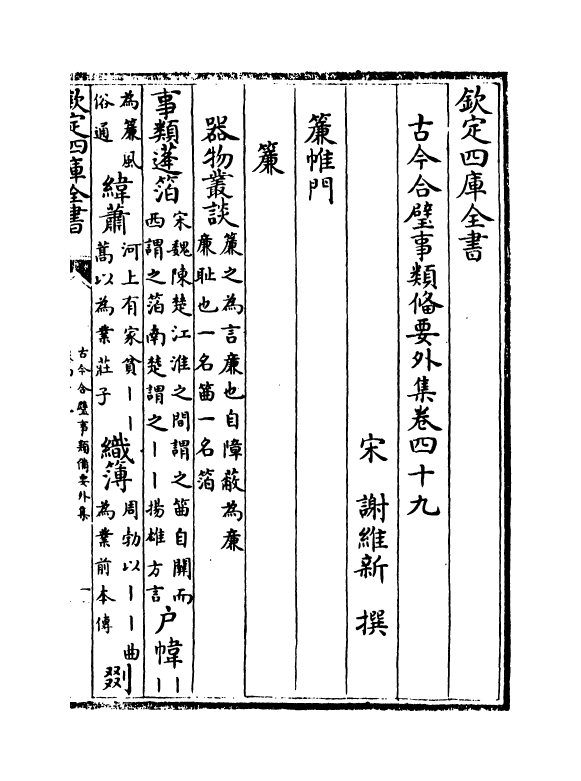 欽定四庫全書
古今合璧事類備要外集卷四十九
宋 謝維新 撰
簾帷門
簾
器物叢談簾之為言廉也自障蔽為廉
廉耻也一名𥳑一名箔
事類蓬箔宋魏陳楚江淮之間謂之𥳑自關而
西謂之箔南楚謂之丨丨揚雄方言戸幃丨丨
為簾風
俗通緯蕭河上有家貧丨丨
蒿以為業莊子織薄周勃以丨丨曲
為業前本傳
欽定四庫全書
古今合璧事類備要外集